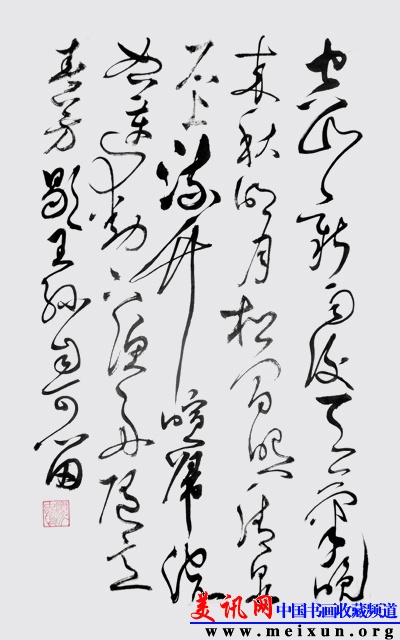 空山新雨後天氣晚
來秋明月松間照清泉
石上流竹喧歸浣
女蓮動下漁舟隨意
春芳歇王孫自可留
美讯网 中国书画收藏频道
www.meixun.org